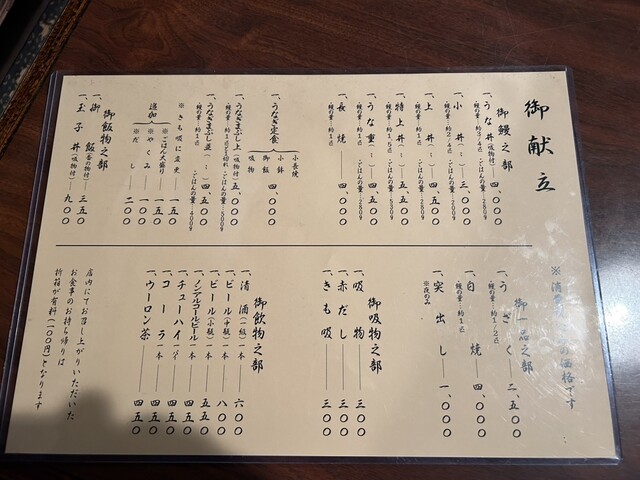 御献立
御鰻之部
一、うな丼(吸物付)四、〇〇〇
・鰻の量…約3/4匹 ・ごはんの量…280g
一、小丼(〃)三、〇〇〇
・鰻の量…約3/4匹 ・ごはんの量…200g
一、上丼(〃)四、五〇〇
・鰻の量…約1匹 ・ごはんの量…280g
一、特上丼(〃)五、五〇〇
・鰻の量…約1.5匹 ・ごはんの量…530g
一、うな重(〃)四、五〇〇
・鰻の量…約1匹 ・ごはんの量…280g
一、長焼 四、〇〇〇
・鰻の量…約1匹
一、うなぎ定食 四、〇〇〇
小長焼
小鉢
御飯
吸物
一、うなぎまぶし上(吸物付)五、〇〇〇
一、うなぎまぶし並(〃)四、五〇〇
・鰻の量…約1匹 ・ごはんの量…400g
※きも吸に変更 一五〇
追加
※ごはん大盛り 一五〇
※やくみ 一〇〇
※だし 二〇〇
御飯物之部
一、御飯(香の物付)三五〇
一、玉子丼(吸物付)九〇〇
御一品之部
一、うざく 二、五〇〇
・鰻の量…約1/2匹
一、白焼 四、〇〇〇
・鰻の量…約1匹
一、突出し 一、〇〇〇
※夜のみ
御吸物之部
一、吸物 三〇〇
一、赤だし 三〇〇
一、きも吸 三〇〇
御飲物之部
一、清酒(一級)一本 六〇〇
一、ビール(中瓶)一本 八〇〇
一、ビール(小瓶)一本 五五〇
一、ノンアルコールビール一本 四五〇
一、チューハイ 一本 四五〇
一、コーラ 一本 四五〇
一、ウーロン茶 四五〇
店内にてお召し上がりいただいた
お食事のお持ち帰りは
折箱が有料(一〇〇円)となります